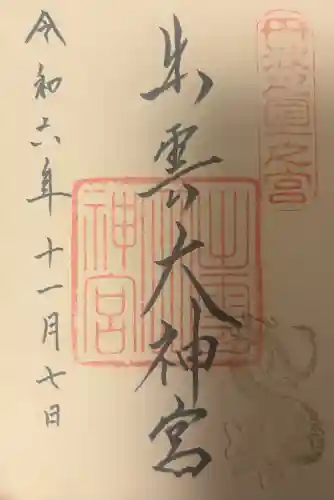 丹波國一之宮
出雲大神宮
出雲大神宮
令和六年十一月七日